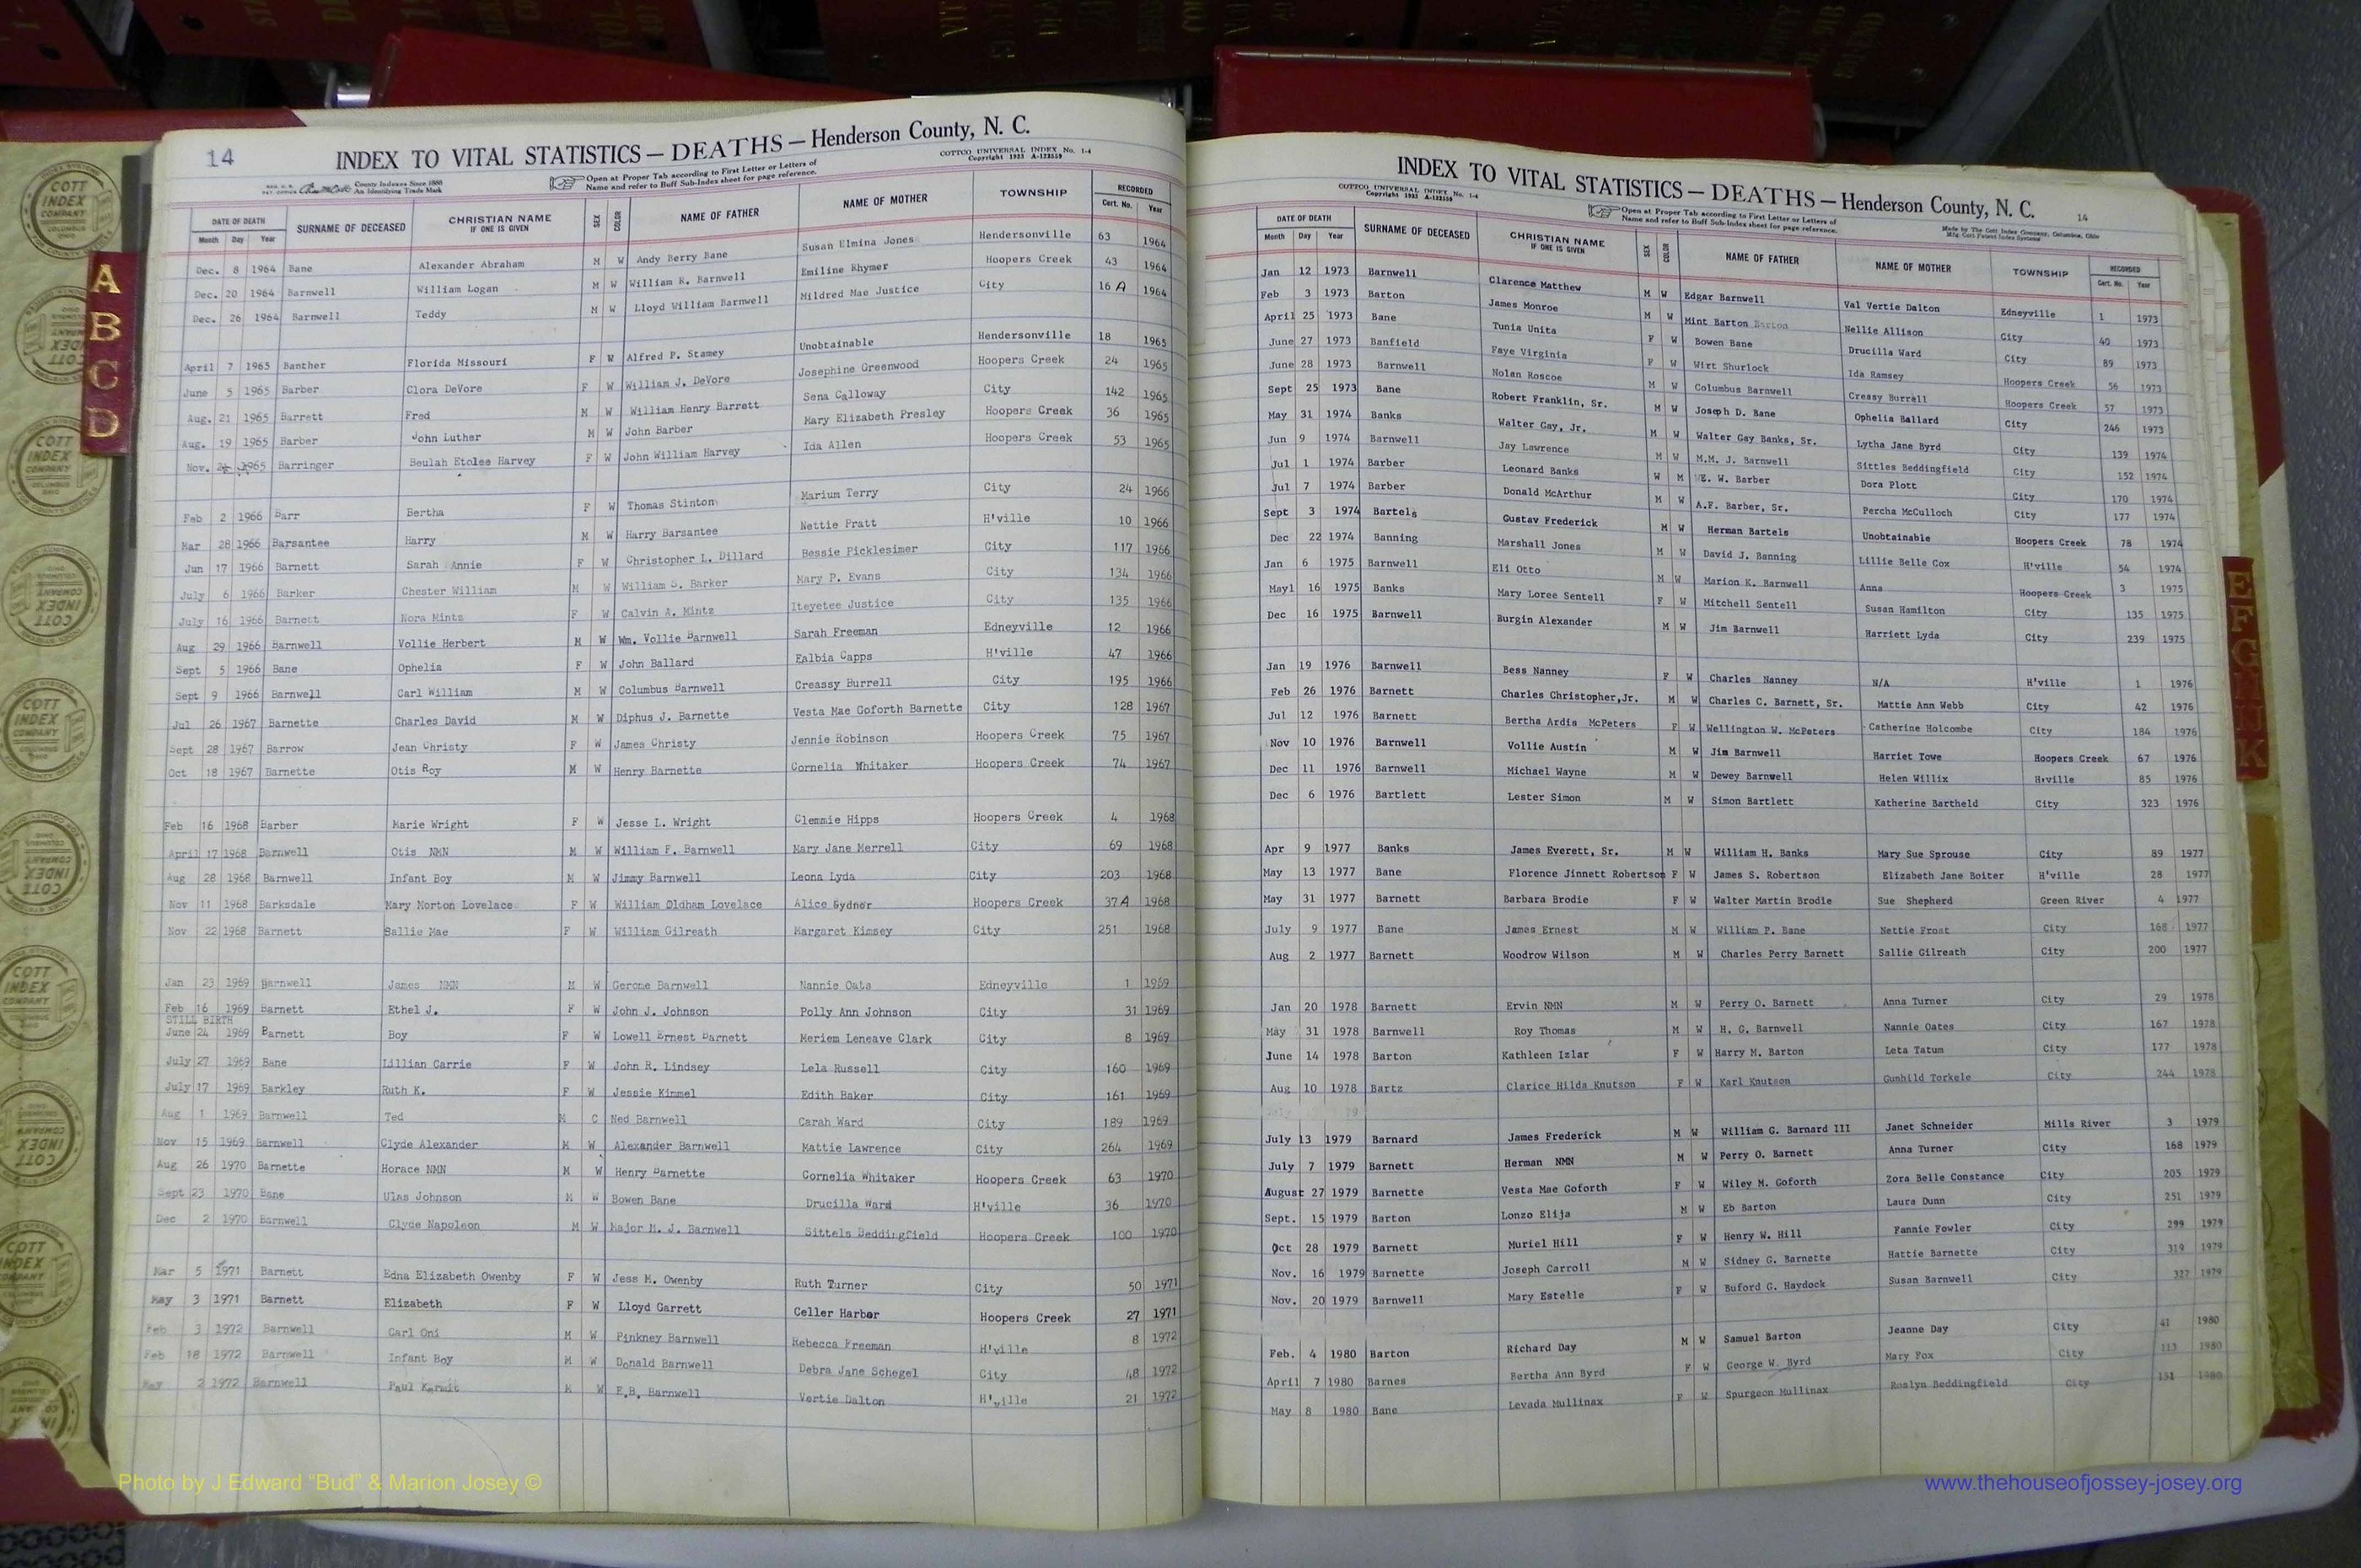 14
INDEX TO VITAL STATISTICS — DEATHS — Henderson County, N. C.
COTTCO UNIVERSAL INDEX No. 1-4
Copyright 1933 A-122559
County Indexes Since 1888
An Identifying Trade Mark
Open at Proper Tab according to First Letter or Letters of
Name and refer to Buff Sub-Index sheet for page reference.
DATE OF DEATH SURNAME OF DECEASED CHRISTIAN NAME IF ONE IS GIVEN SEX COLOR NAME OF FATHER NAME OF MOTHER TOWNSHIP RECORDED
Month Day Year Cert. No. Year
Dec. 8 1964 Bane Alexander Abraham M W Andy Berry Bane Susan Elmina Jones Hendersonville 63 1964
Dec. 20 1964 Barnwell William Logan M W William K. Barnwell Emiline Rhymer Hoopers Creek 43 1964
Dec. 26 1964 Barnwell Teddy M W Lloyd William Barnwell Mildred Mae Justice City 16 A 1964
April 7 1965 Banther Florida Missouri F W Alfred P. Stamey Unobtainable Hendersonville 18 1965
June 5 1965 Barber Clora DeVore F W William J. DeVore Josephine Greenwood Hoopers Creek 24 1965
Aug. 21 1965 Barrett Fred M W William Henry Barrett Sena Calloway City 142 1965
Aug. 19 1965 Barber John Luther M W John Barber Mary Elizabeth Presley Hoopers Creek 36 1965
Nov. 1965 Barringer Beulah Etolee Harvey F W John William Harvey Ida Allen Hoopers Creek 53 1965
Feb 2 1966 Barr Bertha F W Thomas Stinton Marium Terry City 24 1966
Mar 28 1966 Barsantee Harry M W Harry Barsantee Nettie Pratt H'ville 10 1966
Jun 17 1966 Barnett Sarah Annie F W Christopher L. Dillard Bessie Picklesimer City 117 1966
July 6 1966 Barker Chester William M W William S. Barker Mary P. Evans City 134 1966
July 16 1966 Barnett Nora Mintz F W Calvin A. Mintz Iteyetee Justice City 135 1966
Aug 29 1966 Barnwell Vollie Herbert M W Wm. Vollie Barnwell Sarah Freeman Edneyville 12 1966
Sept 5 1966 Bane Ophelia F W John Ballard Ealbia Capps H'ville 47 1966
Sept 9 1966 Barnwell Carl William M W Columbus Barnwell Creassy Burrell City 195 1966
Jul 26 1967 Barnette Charles David M W Diphus J. Barnette Vesta Mae Goforth Barnette City 128 1967
Sept 28 1967 Barrow Jean Christy F W James Christy Jennie Robinson Hoopers Creek 75 1967
Oct 18 1967 Barnette Otis Roy M W Henry Barnette Cornelia Whitaker Hoopers Creek 74 1967
Feb 16 1968 Barber Marie Wright F W Jesse L. Wright Clemmie Hipps Hoopers Creek 4 1968
April 17 1968 Barnwell Otis NMN M W William F. Barnwell Mary Jane Merrell City 69 1968
Aug 28 1968 Barnwell Infant Boy M W Jimmy Barnwell Leona Lyda City 203 1968
Nov 11 1968 Barksdale Mary Morton Lovelace F W William Oldham Lovelace Alice Sydnor Hoopers Creek 37 A 1968
Nov 22 1968 Barnett Sallie Mae F W William Gilreath Margaret Kimsey City 251 1968
Jan 23 1969 Barnwell James NMN M W Gerome Barnwell Nannie Oats Edneyville 1 1969
Feb 16 1969 Barnett Ethel J. F W John J. Johnson Polly Ann Johnson City 31 1969
STILL BIRTH
June 24 1969 Barnett Boy F W Lowell Ernest Barnett Meriem Leneave Clark City 8 1969
July 27 1969 Bane Lillian Carrie F W John R. Lindsey Lela Russell City 160 1969
July 17 1969 Barkley Ruth K. F W Jessie Kimmel Edith Baker City 161 1969
Aug 1 1969 Barnwell Ted M C Ned Barnwell Carah Ward City 189 1969
Nov 15 1969 Barnwell Clyde Alexander M W Alexander Barnwell Mattie Lawrence City 264 1969
Aug 26 1970 Barnette Horace NMN M W Henry Barnette Cornelia Whitaker Hoopers Creek 63 1970
Sept 23 1970 Bane Ulas Johnson M W Bowen Bane Drucilla Ward H'ville 36 1970
Dec 2 1970 Barnwell Clyde Napoleon M W Major M. J. Barnwell Sittels Beddingfield Hoopers Creek 100 1970
Mar 5 1971 Barnett Edna Elizabeth Owenby F W Jess M. Owenby Ruth Turner City 50 1971
May 3 1971 Barnett Elizabeth F W Lloyd Garrett Celler Harbor Hoopers Creek 27 1971
Feb 3 1972 Barnwell Carl Oni M W Pinkney Barnwell Rebecca Freeman H'ville 8 1972
Feb 18 1972 Barnwell Infant Boy M W Donald Barnwell Debra Jane Schegel City 48 1972
May 2 1972 Barnwell Paul Kermit M W E.B. Barnwell Vertie Dalton H'ville 21 1972
INDEX TO VITAL STATISTICS — DEATHS — Henderson County, N. C.
COTTCO UNIVERSAL INDEX No. 1-4
Copyright 1933 A-122559
Open at Proper Tab according to First Letter or Letters of
Name and refer to Buff Sub-Index sheet for page reference.
14
Made by The Cott Index Company, Columbus, Ohio
DATE OF DEATH SURNAME OF DECEASED CHRISTIAN NAME IF ONE IS GIVEN SEX COLOR NAME OF FATHER NAME OF MOTHER TOWNSHIP RECORDED
Month Day Year Cert. No. Year
Jan 12 1973 Barnwell Clarence Matthew M W Edgar Barnwell Val Vertie Dalton Edneyville 1 1973
Feb 3 1973 Barton James Monroe M W Mint Barton Barton Nellie Allison City 40 1973
April 25 1973 Bane Tunia Unita F W Bowen Bane Drucilla Ward City 89 1973
June 27 1973 Banfield Faye Virginia F W Wirt Shurlock Ida Ramsey Hoopers Creek 56 1973
June 28 1973 Barnwell Nolan Roscoe M W Columbus Barnwell Creasy Burrell Hoopers Creek 57 1973
Sept 25 1973 Bane Robert Franklin, Sr. M W Joseph D. Bane Ophelia Ballard City 246 1973
May 31 1974 Banks Walter Gay, Jr. M W Walter Gay Banks, Sr. Lytha Jane Byrd City 139 1974
Jun 9 1974 Barnwell Jay Lawrence M W M.M. J. Barnwell Sittles Beddingfield City 152 1974
Jul 1 1974 Barber Leonard Banks W M E. W. Barber Dora Plott City 170 1974
Jul 7 1974 Barber Donald McArthur M W A.F. Barber, Sr. Percha McCulloch City 177 1974
Sept 3 1974 Bartels Gustav Frederick M W Herman Bartels Unobtainable Hoopers Creek 78 1974
Dec 22 1974 Banning Marshall Jones M W David J. Banning Lillie Belle Cox H'ville 54 1974
Jan 6 1975 Barnwell Eli Otto M W Marion K. Barnwell Anna Hoopers Creek 3 1975
May1 16 1975 Banks Mary Loree Sentell F W Mitchell Sentell Susan Hamilton City 135 1975
Dec 16 1975 Barnwell Burgin Alexander M W Jim Barnwell Harriett Lyda City 239 1975
Jan 19 1976 Barnwell Bess Nanney F W Charles Nanney N/A H'ville 1 1976
Feb 26 1976 Barnett Charles Christopher,Jr. M W Charles C. Barnett, Sr. Mattie Ann Webb City 42 1976
Jul 12 1976 Barnett Bertha Ardis McPeters F W Wellington W. McPeters Catherine Holcombe City 184 1976
Nov 10 1976 Barnwell Vollie Austin M W Jim Barnwell Harriet Towe Hoopers Creek 67 1976
Dec 11 1976 Barnwell Michael Wayne M W Dewey Barnwell Helen Willix H'ville 85 1976
Dec 6 1976 Bartlett Lester Simon M W Simon Bartlett Katherine Bartheld City 323 1976
Apr 9 1977 Banks James Everett, Sr. M W William H. Banks Mary Sue Sprouse City 89 1977
May 13 1977 Bane Florence Jinnett Robertson F W James S. Robertson Elizabeth Jane Boiter H'ville 28 1977
May 31 1977 Barnett Barbara Brodie F W Walter Martin Brodie Sue Shepherd Green River 4 1977
July 9 1977 Bane James Ernest M W William P. Bane Nettie Frost City 168 1977
Aug 2 1977 Barnett Woodrow Wilson M W Charles Perry Barnett Sallie Gilreath City 200 1977
Jan 20 1978 Barnett Ervin NMN M W Perry O. Barnett Anna Turner City 29 1978
May 31 1978 Barnwell Roy Thomas M W H. G. Barnwell Nannie Oates City 167 1978
June 14 1978 Barton Kathleen Izlar F W Harry M. Barton Leta Tatum City 177 1978
Aug 10 1978 Bartz Clarice Hilda Knutson F W Karl Knutson Gunhild Torkele City 244 1978
July 13 1979 Barnard James Frederick M W William G. Barnard III Janet Schneider Mills River 3 1979
July 7 1979 Barnett Herman NMN M W Perry O. Barnett Anna Turner City 168 1979
August 27 1979 Barnette Vesta Mae Goforth F W Wiley M. Goforth Zora Belle Constance City 205 1979
Sept. 15 1979 Barton Lonzo Elija M W Eb Barton Laura Dunn City 251 1979
Oct 28 1979 Barnett Muriel Hill F W Henry W. Hill Fannie Fowler City 299 1979
Nov. 16 1979 Barnette Joseph Carroll M W Sidney G. Barnette Hattie Barnette City 319 1979
Nov. 20 1979 Barnwell Mary Estelle F W Buford G. Haydock Susan Barnwell City 327 1979
Feb. 4 1980 Barton Richard Day M W Samuel Barton Jeanne Day City 41 1980
April 7 1980 Barnes Bertha Ann Byrd F W George W. Byrd Mary Fox City 113 1980
May 8 1980 Bane Levada Mullinax F W Spurgeon Mullinax Roslyn Beddingfield City 151 1980
A
B
C
D
E
F
G
K
COTT INDEX COMPANY COLUMBUS OHIO
Photo by J Edward “Bud” & Marion Josey ©
www.thehouseofjossey-josey.org